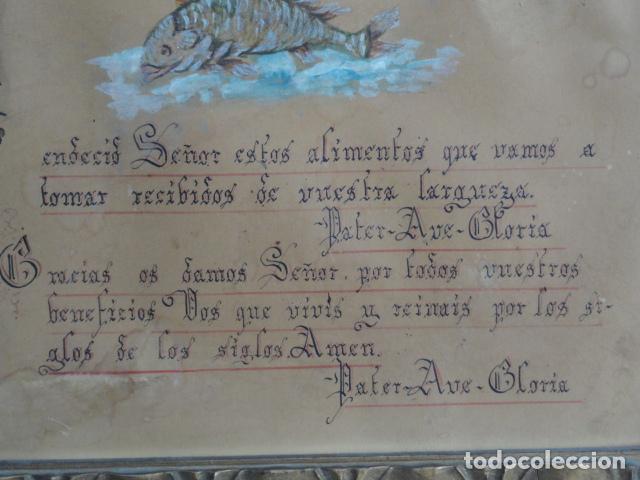 endecid Señor estos alimentos que vamos a
tomar recibidos de vuestra largueza.
Pater-Ave-Gloria
Gracias os damos Señor por todos vuestros
beneficios Vos que vivis y reinais por los si-
glos de los siglos. Amen.
Pater-Ave-Gloria
todocoleccion.net